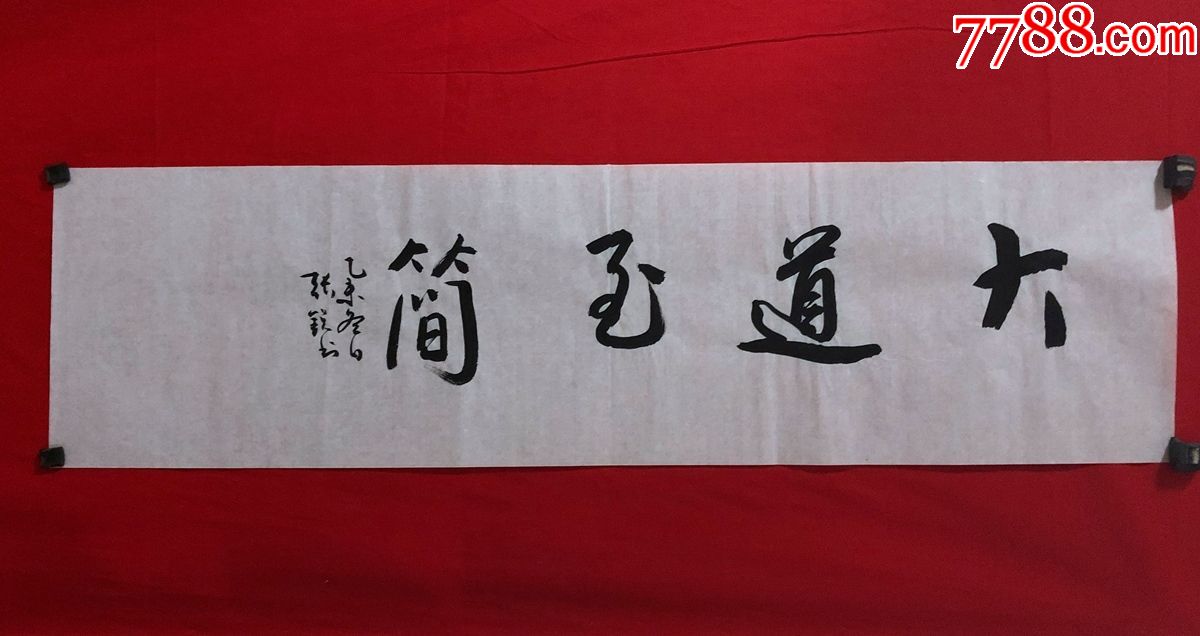 7788.com
大道至简
乙未冬日
张锐书